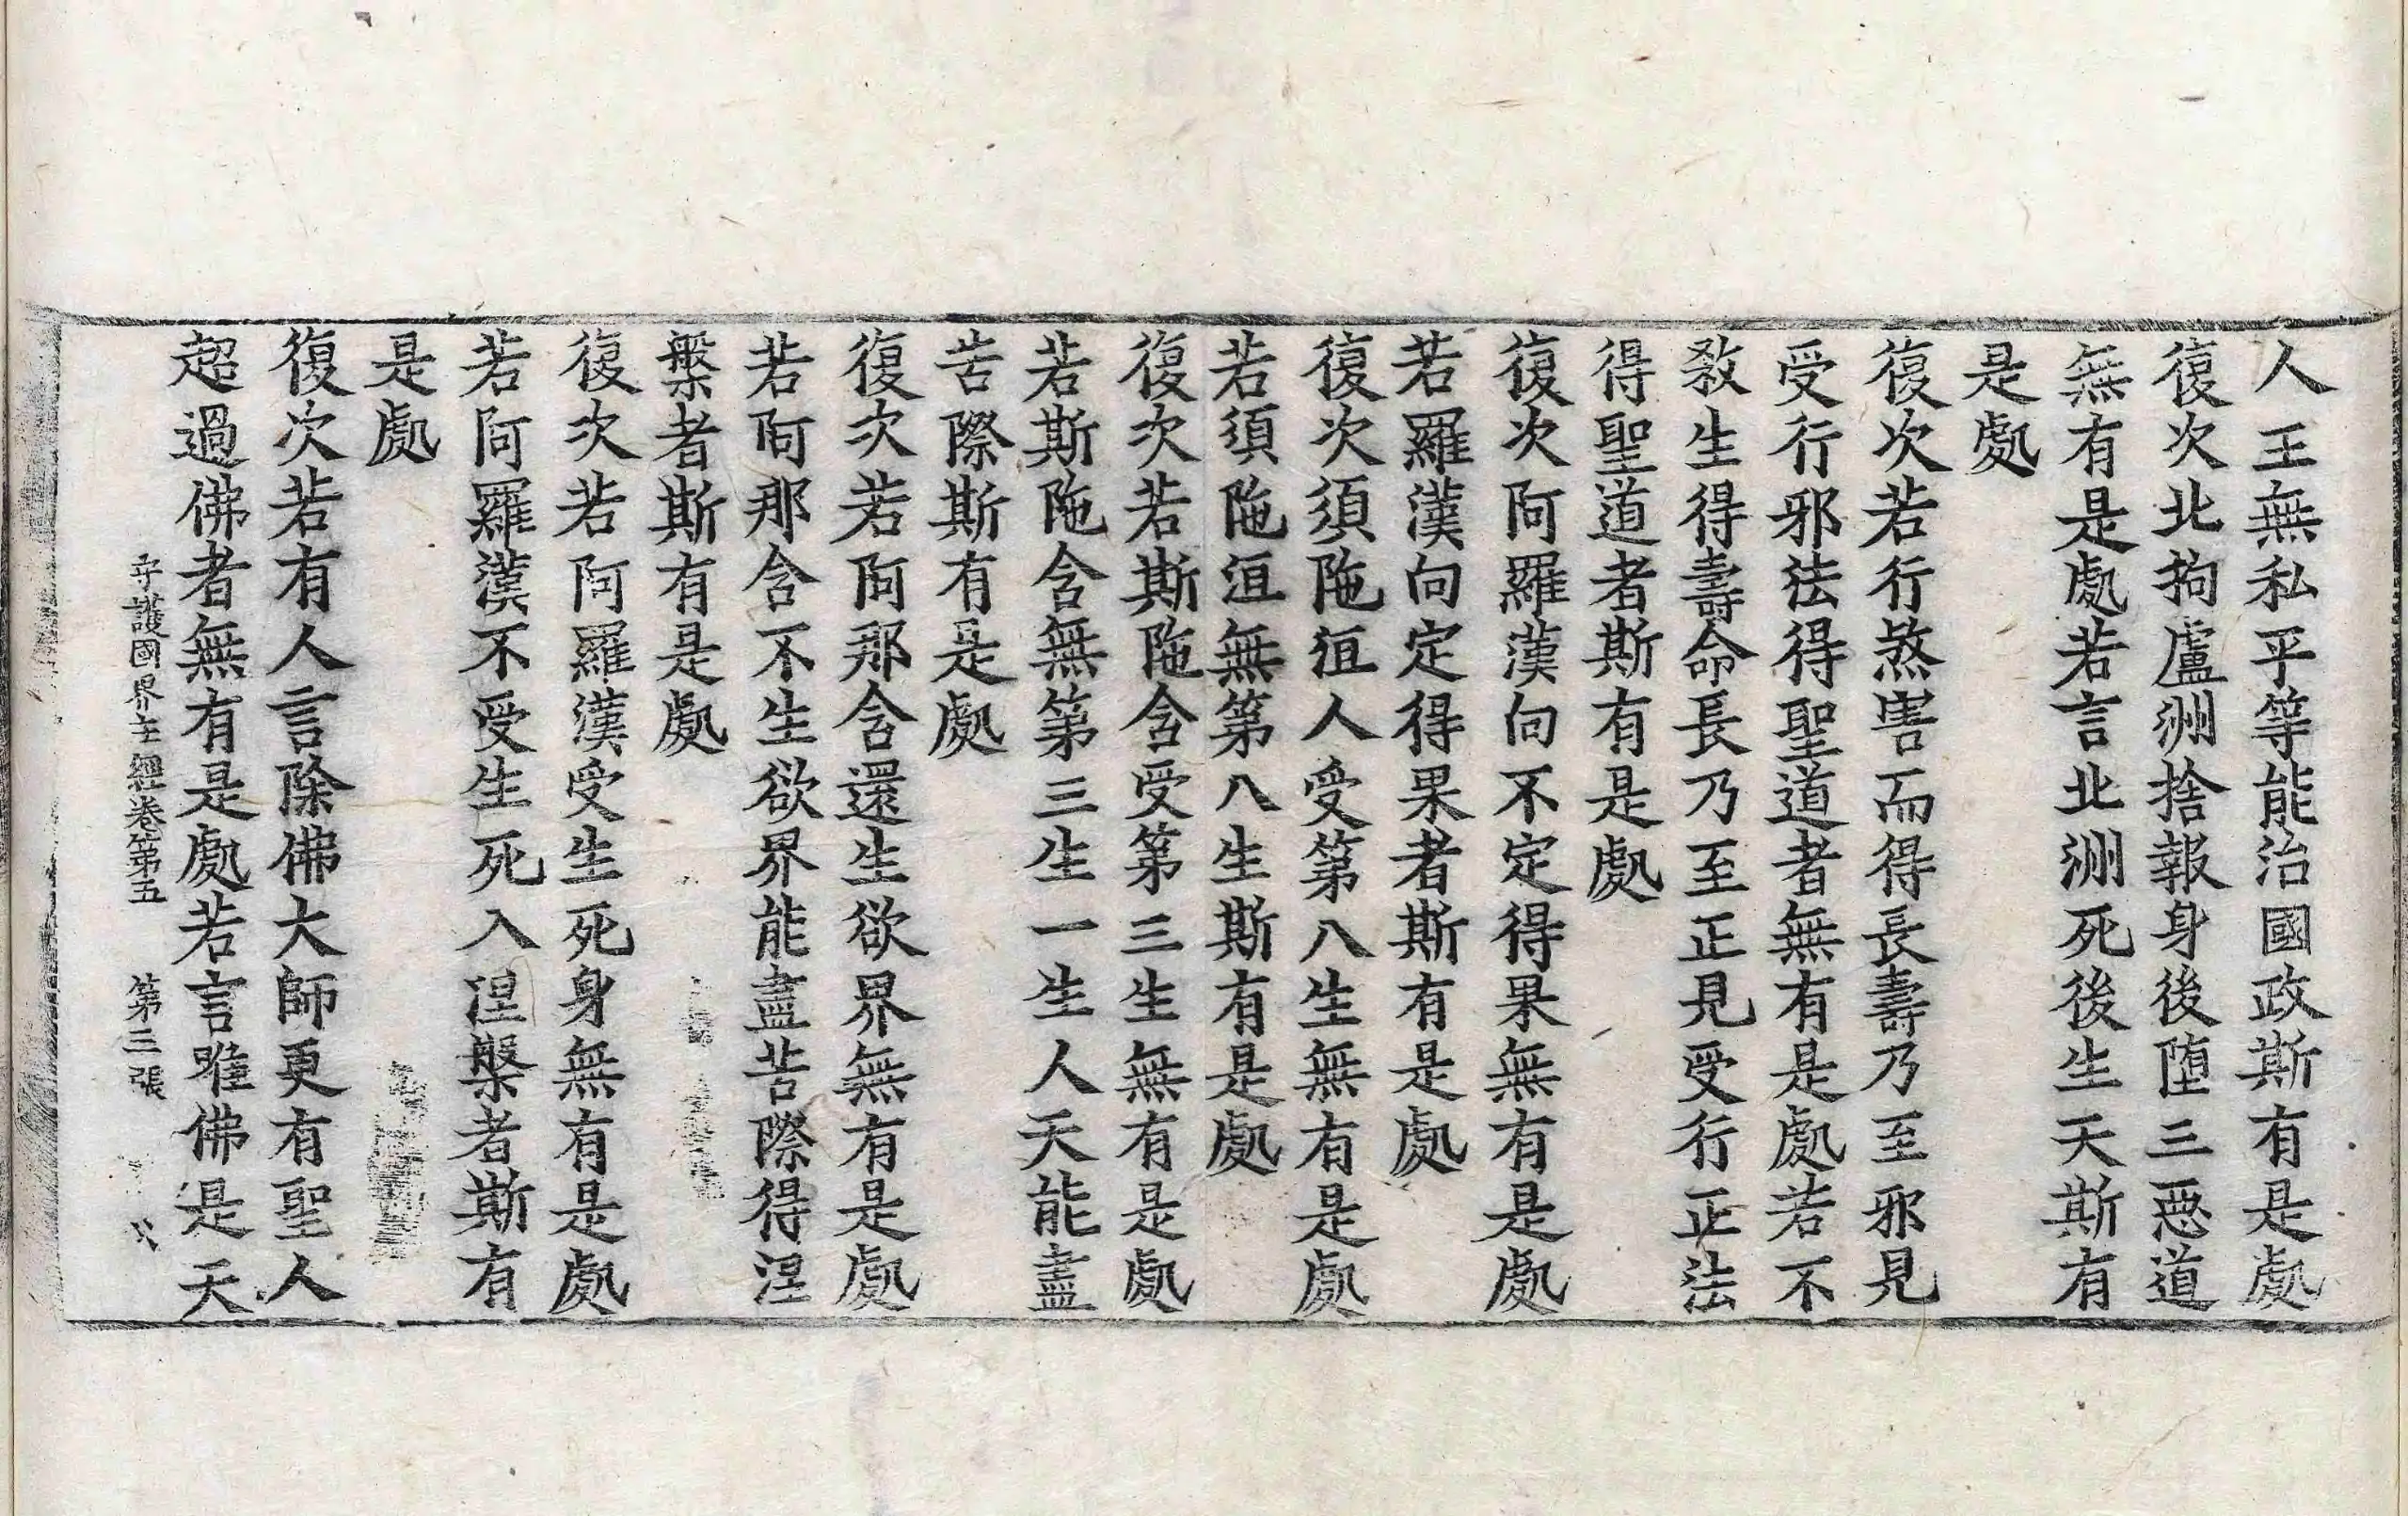 人王無私平等能治國政斯有是處
復次北拘盧洲捨報身後堕三惡道
無有是處若言北洲死後生天斯有
是處
復次若行煞害而得長壽乃至邪見
受行邪法得聖道者無有是處若不
敎生得壽命長乃至正見受行正法
得聖道者斯有是處
復次阿羅漢向不定得果無有是處
若羅漢向定得果者斯有是處
復次須陁洹人受第八生無有是處
若須陁洹無第八生斯有是處
復次若斯陁含受第三生無有是處
若斯陁含無第三生一生人天能盡
苦際斯有是處
復次若阿那含還生欲界無有是處
若阿那含不生欲界能盡苦際得涅
槃者斯有是處
復次若阿羅漢受生死身無有是處
若阿羅漢不受生死入涅槃者斯有
是處
復次若有人言除佛大師更有聖人
超過佛者無有是處若言唯佛是天
守護國界主經卷第五　第三張